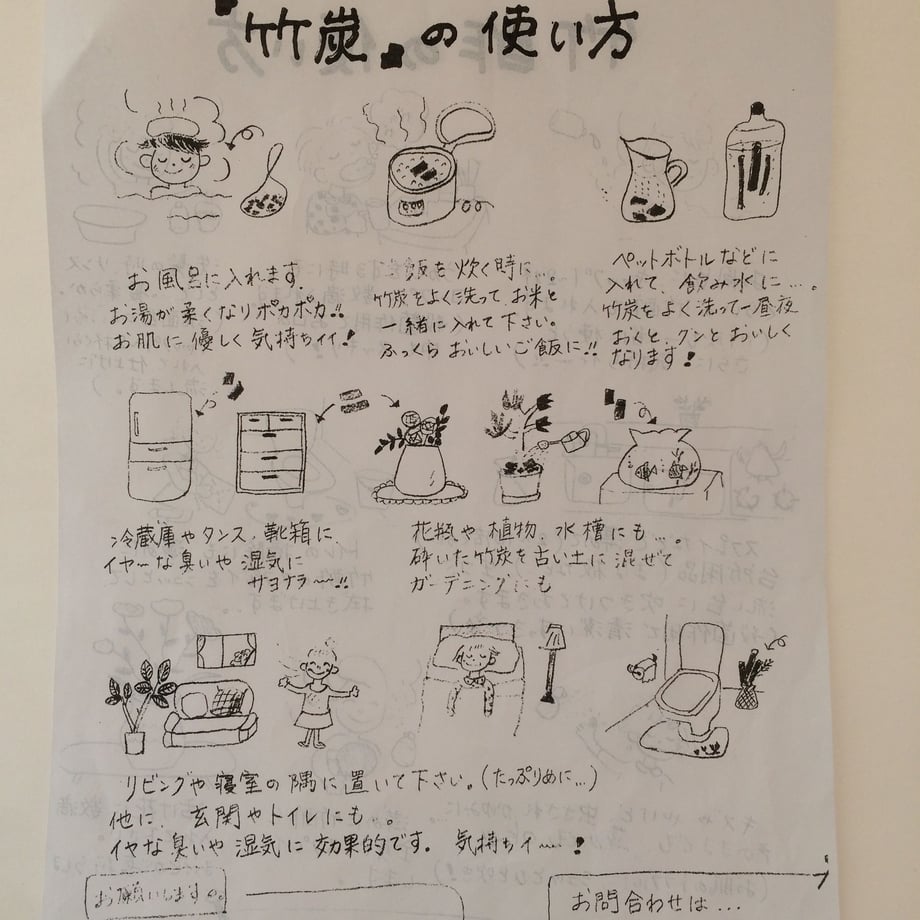 『竹炭』の使い方
お風呂に入れます。
お湯が柔くなりポカポカ!!
お肌に優しく気持ちイイ!
ご飯を炊く時に…。
竹炭をよく洗って、お米と
一緒に入れて下さい。
ふっくらおいしいご飯に!!
ペットボトルなどに
入れて、飲み水に…。
竹炭をよく洗って一昼夜
おくと、グンとおいしく
なります!
冷蔵庫やタンス、靴箱に、
イヤ〜な臭いや湿気に
サヨナラ〜!!
花瓶や植物、水槽にも…。
砕いた竹炭を古い土に混ぜて
ガーデニングにも
リビングや寝室の隅に置いて下さい。(たっぷりめに…)
他に、玄関やトイレにも…。
イヤな臭いや湿気に効果的です。気持ちイ〜!
お願いします
お問合わせは…